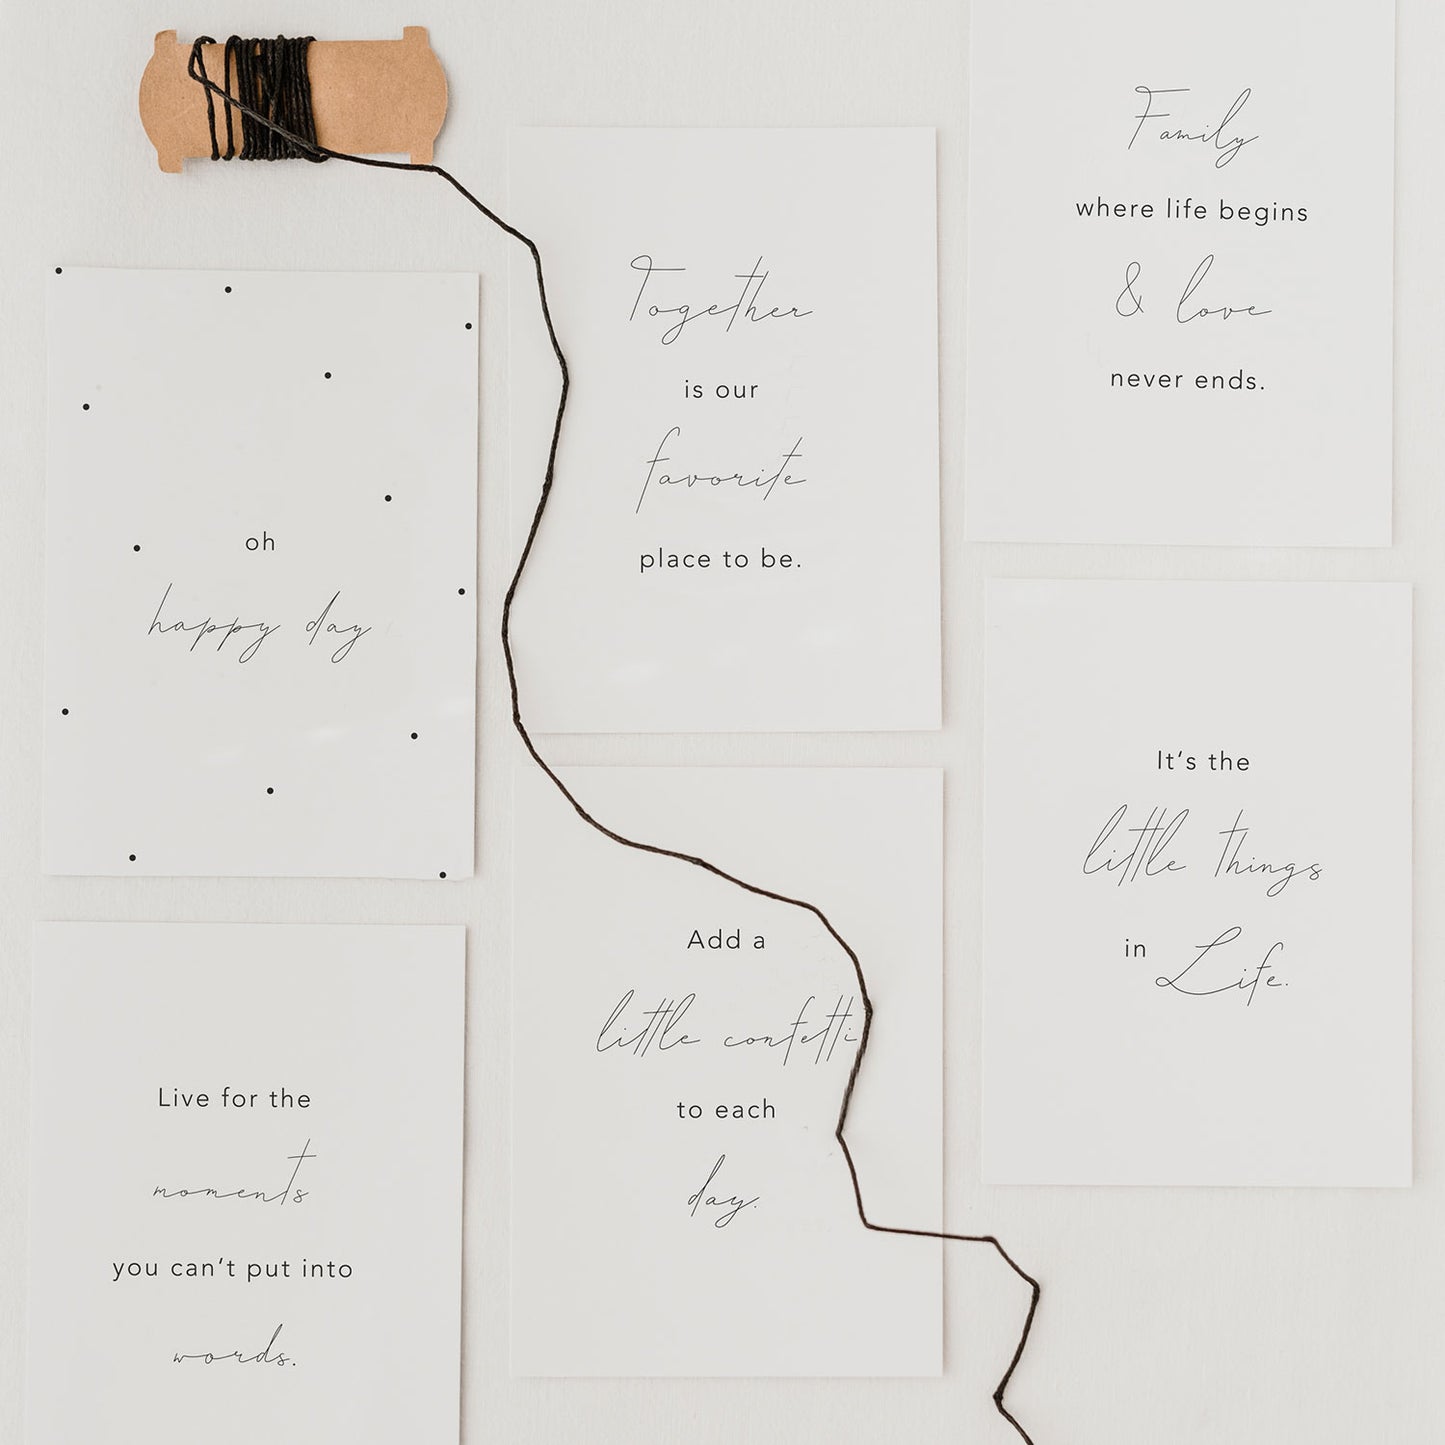 oh
happy day
Together
is our
favorite
place to be.
Family
where life begins
& love
never ends.
Live for the
moments
you can't put into
words.
Add a
little confetti
to each
day.
It's the
little things
in Life.